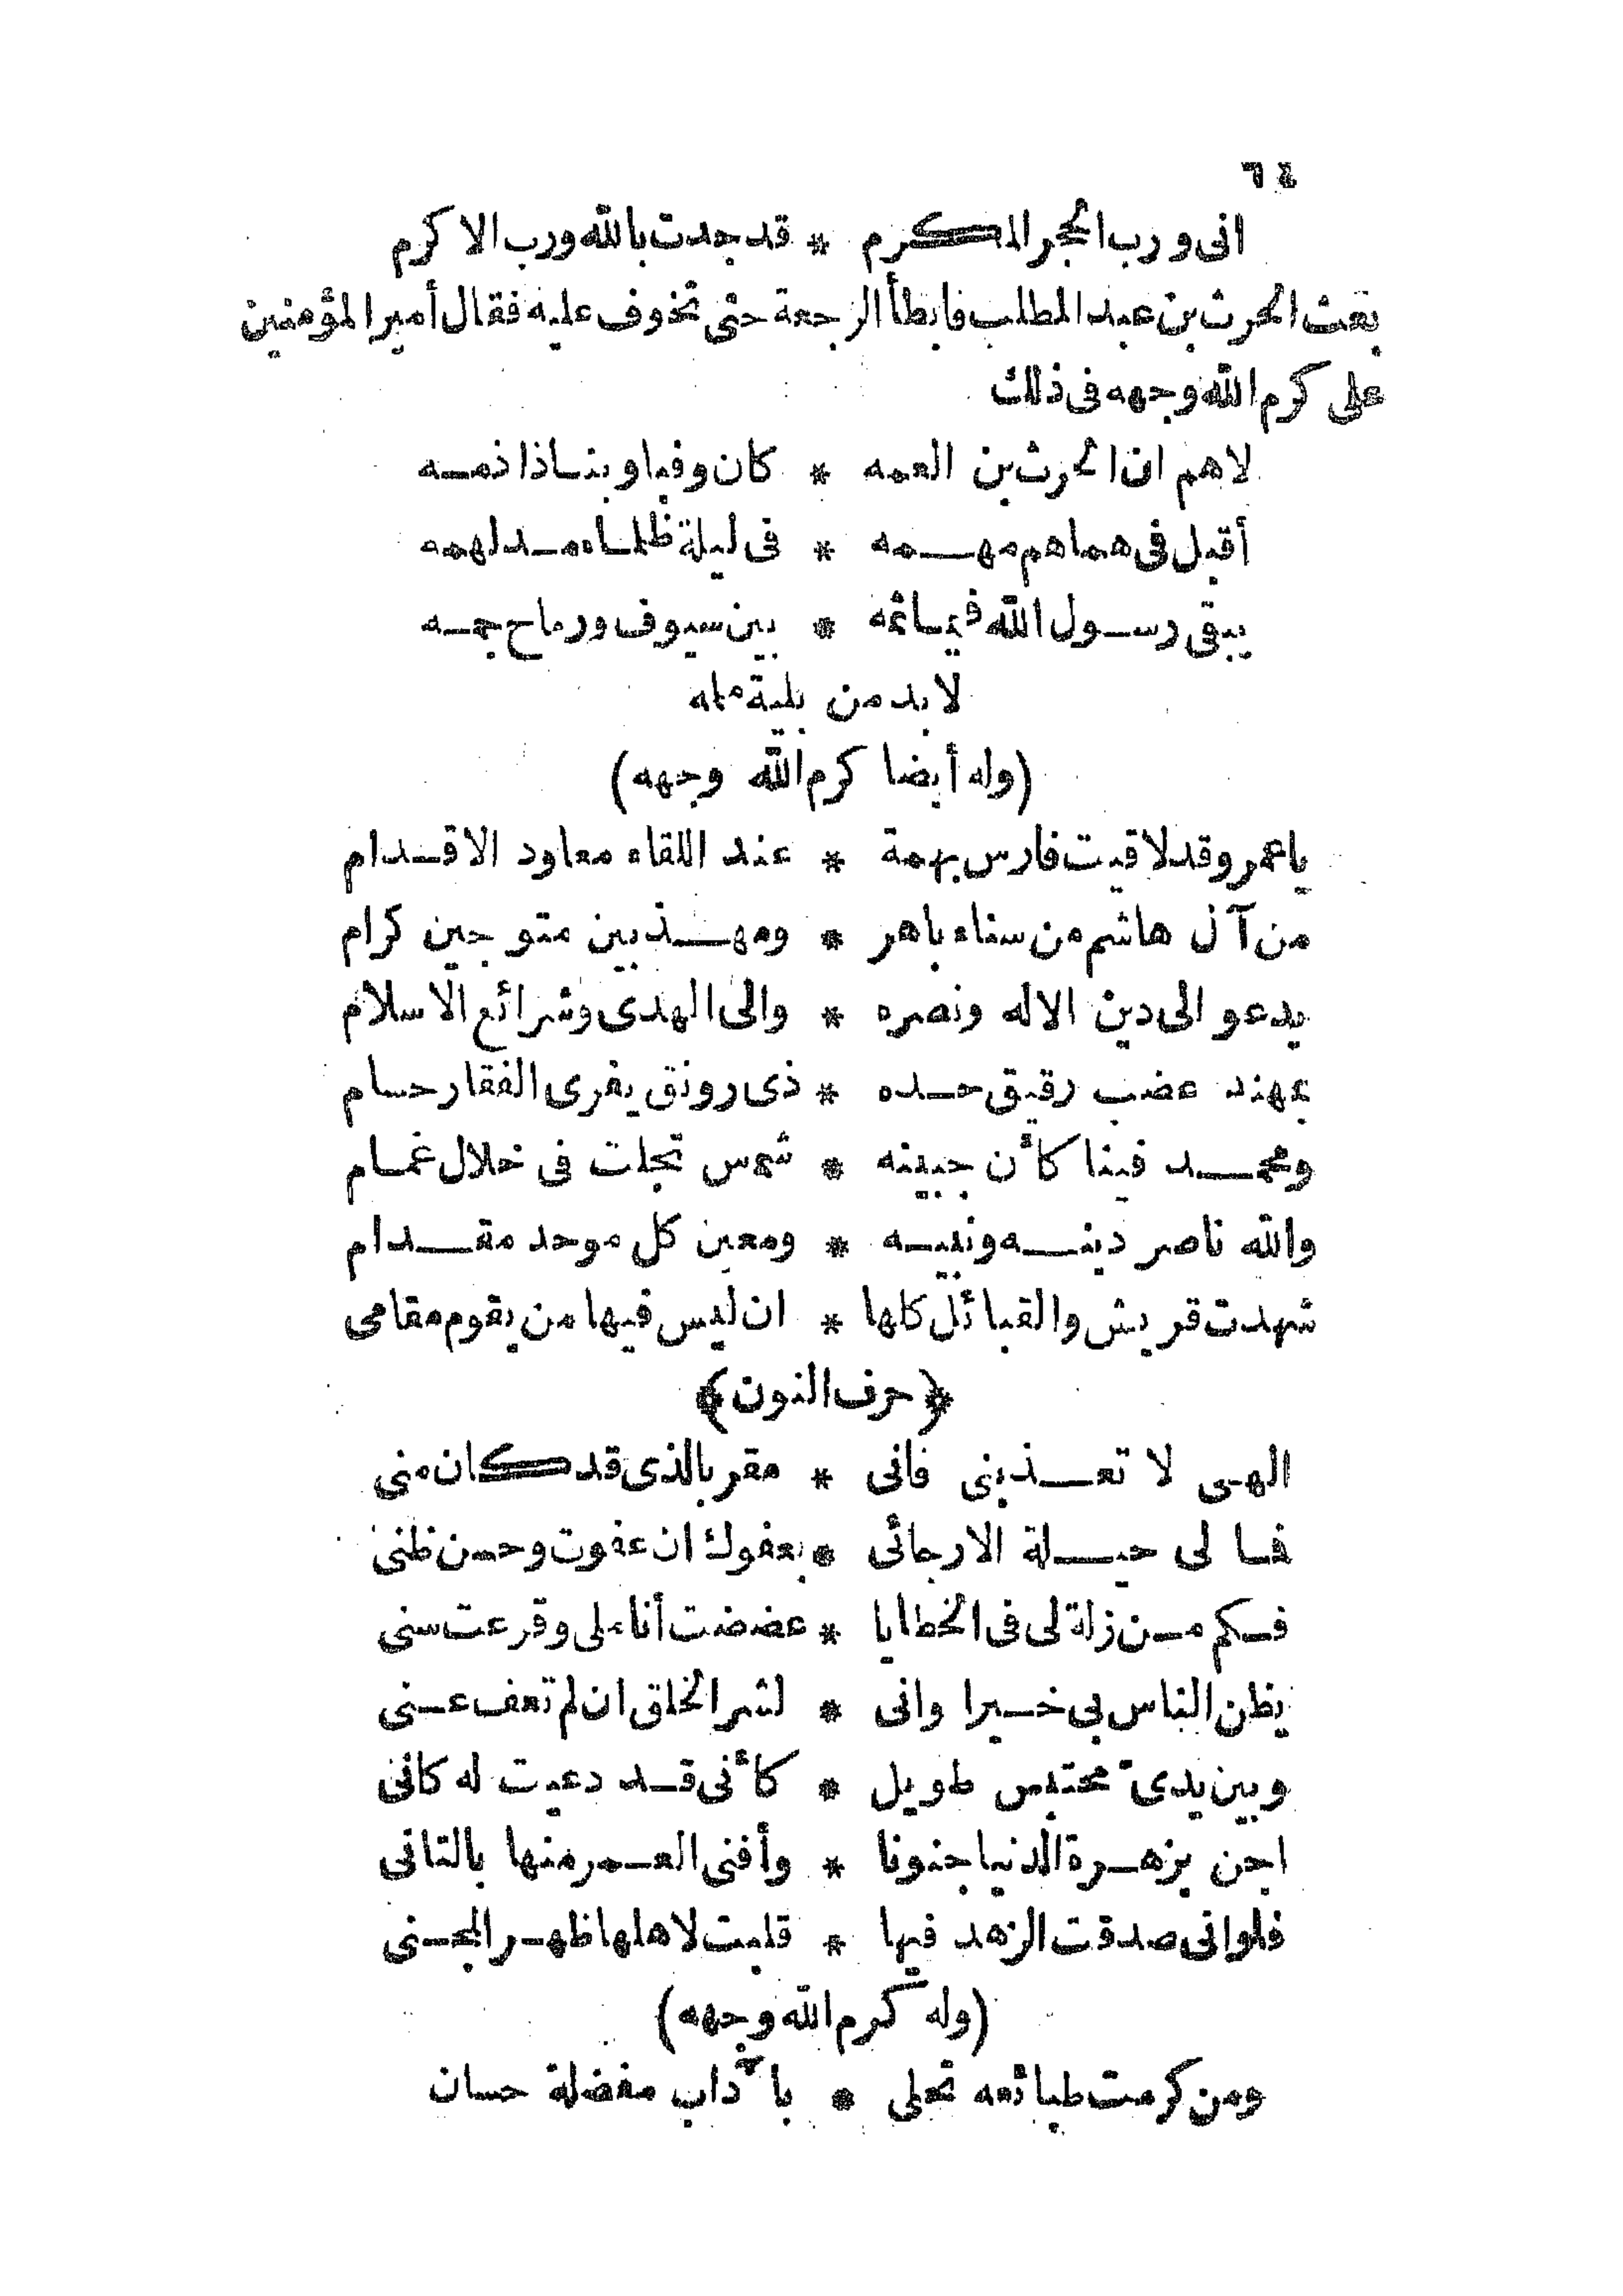 ٦٤
انى ورب الحجر المكرم * قد جدت بالله ورب الاكرم
بعث الحرث بن عبد المطلب فابطأ الرجعة حتى تخوف عليه فقال أمير المؤمنين
على كرم الله وجهه فى ذلك
لاهم ان الحرث بن العمه * كان وفيا وبنا ذا ذمه
أقبل فى هماهم مهمه * فى ليلة ظلماء مدلهمه
يبقى رسول الله فيما ثمه * بين سيوف ورماح جمه
لابد من بلية ملمه
(وله أيضا كرم الله وجهه)
يا عمرو قد لاقيت فارس بهمة * عند اللقاء معاود الاقدام
من آل هاشم من سناء باهر * ومهذبين متوجين كرام
يدعو الى دين الاله ونصره * والى الهدى وشرائع الاسلام
بمهند عضب رقيق حده * ذى رونق يفرى الفقار حسام
ومحمد فينا كأن جبينه * شمس تجلت فى خلال غمام
والله ناصر دينه ونبيه * ومعين كل موحد مقدام
شهدت قريش والقبائل كلها * ان ليس فيها من يقوم مقامى
﴿حرف النون﴾
الهى لا تعذبنى فانى * مقر بالذى قد كان منى
فما لى حيلة الارجائى * بعفوك ان عفوت وحسن ظنى
فكم من زلة لى فى الخطايا * عضضت أناملى وقرعت سنى
يظن الناس بى خيرا وانى * لشر الخلق ان لم تعف عنى
وبين يدى محتبس طويل * كأنى قد دعيت له كانى
اجن بزهرة الدنيا جنونا * وأفنى العمر منها بالتانى
فلو انى صدقت الزهد فيها * قلبت لاهلها ظهر المجنى
(وله كرم الله وجهه)
ومن كرمت طبائعه تحلى * بآداب مفضلة حسان